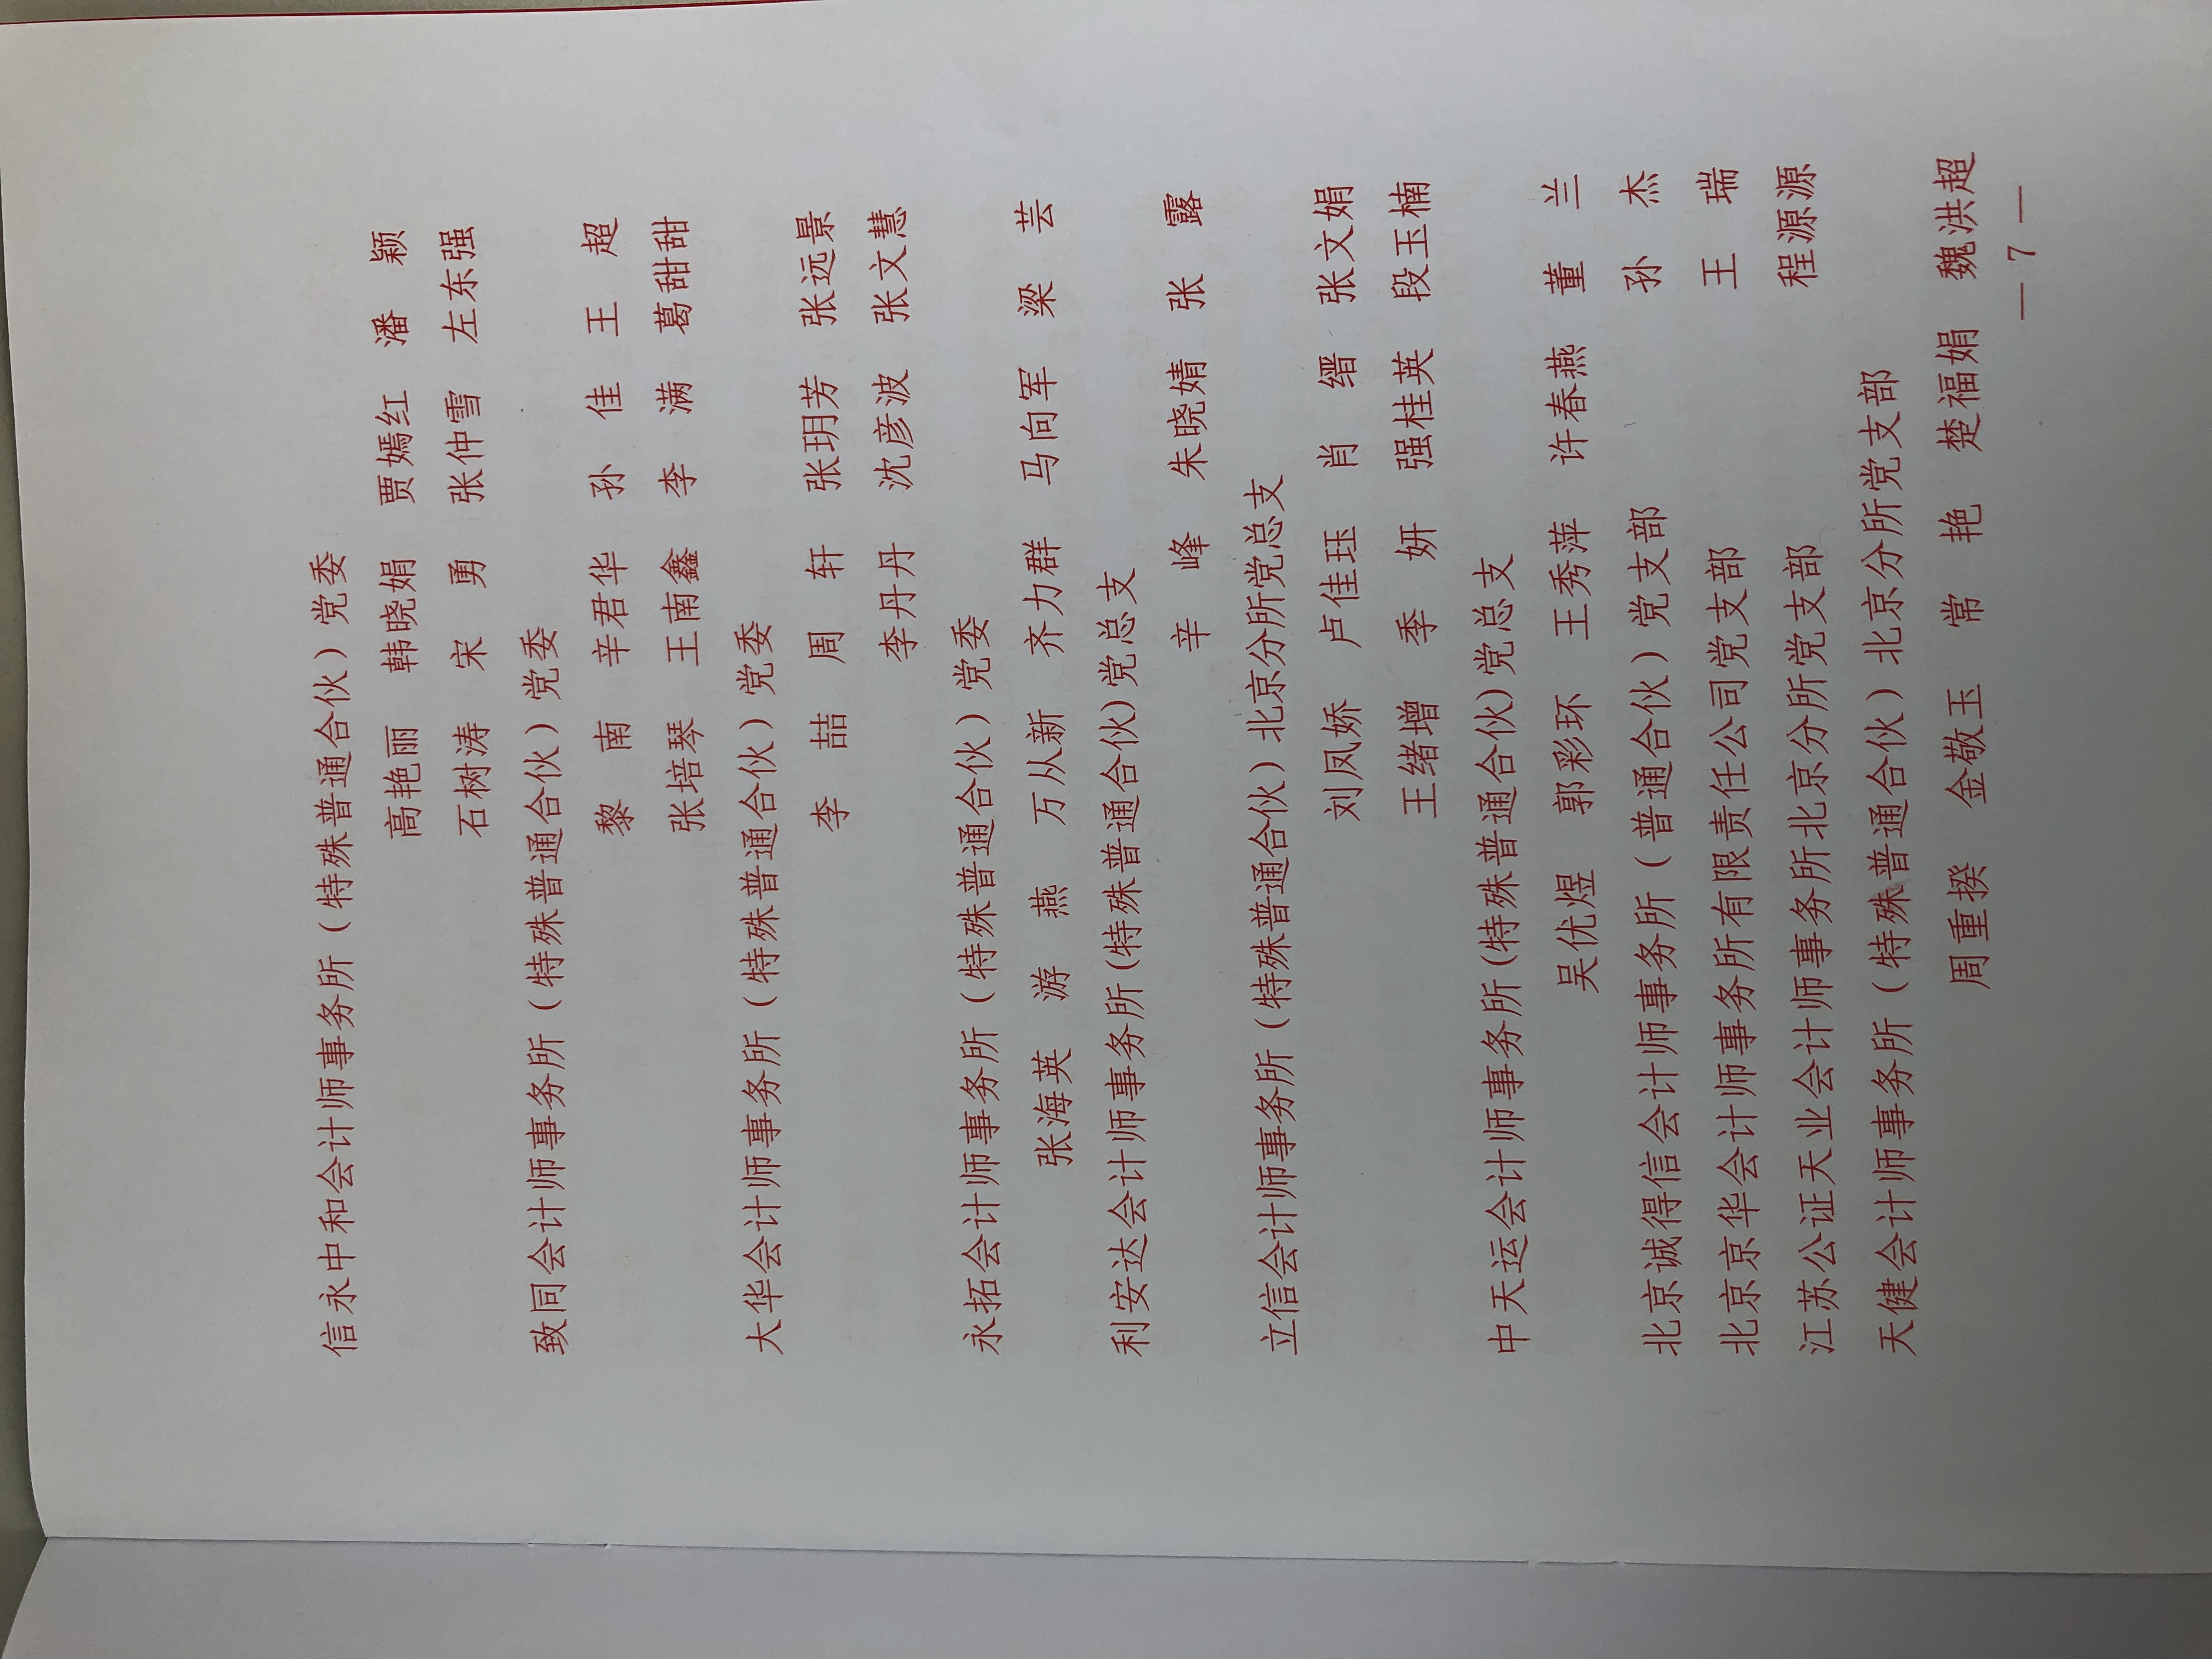 信永中和会计师事务所（特殊普通合伙）党委
高艳丽 韩晓娟 贾嫣红 潘 颖
石树涛 宋 勇 张仲雪 左东强
致同会计师事务所（特殊普通合伙）党委
黎 南 辛君华 孙 佳 王 超
张培琴 王南鑫 李 满 葛甜甜
大华会计师事务所（特殊普通合伙）党委
李 喆 周 轩 张玥芳 张远景
李丹丹 沈彦波 张文慧
永拓会计师事务所（特殊普通合伙）党委
张海英 游 燕 万从新 齐力群 马向军 梁 芸
利安达会计师事务所(特殊普通合伙)党总支
辛 峰 朱晓婧 张 露
立信会计师事务所（特殊普通合伙）北京分所党总支
刘凤娇 卢佳珏 肖 缙 张文娟
王绪增 季 妍 强桂英 段玉楠
中天运会计师事务所(特殊普通合伙)党总支
吴优煜 郭彩环 王秀萍 许春燕 董 兰
北京诚得信会计师事务所（普通合伙）党支部 孙 杰
北京京华会计师事务所有限责任公司党支部 王 瑞
江苏公证天业会计师事务所北京分所党支部 程源源
天健会计师事务所（特殊普通合伙）北京分所党支部
周重揆 金敬玉 常 艳 楚福娟 魏洪超
— 7 —